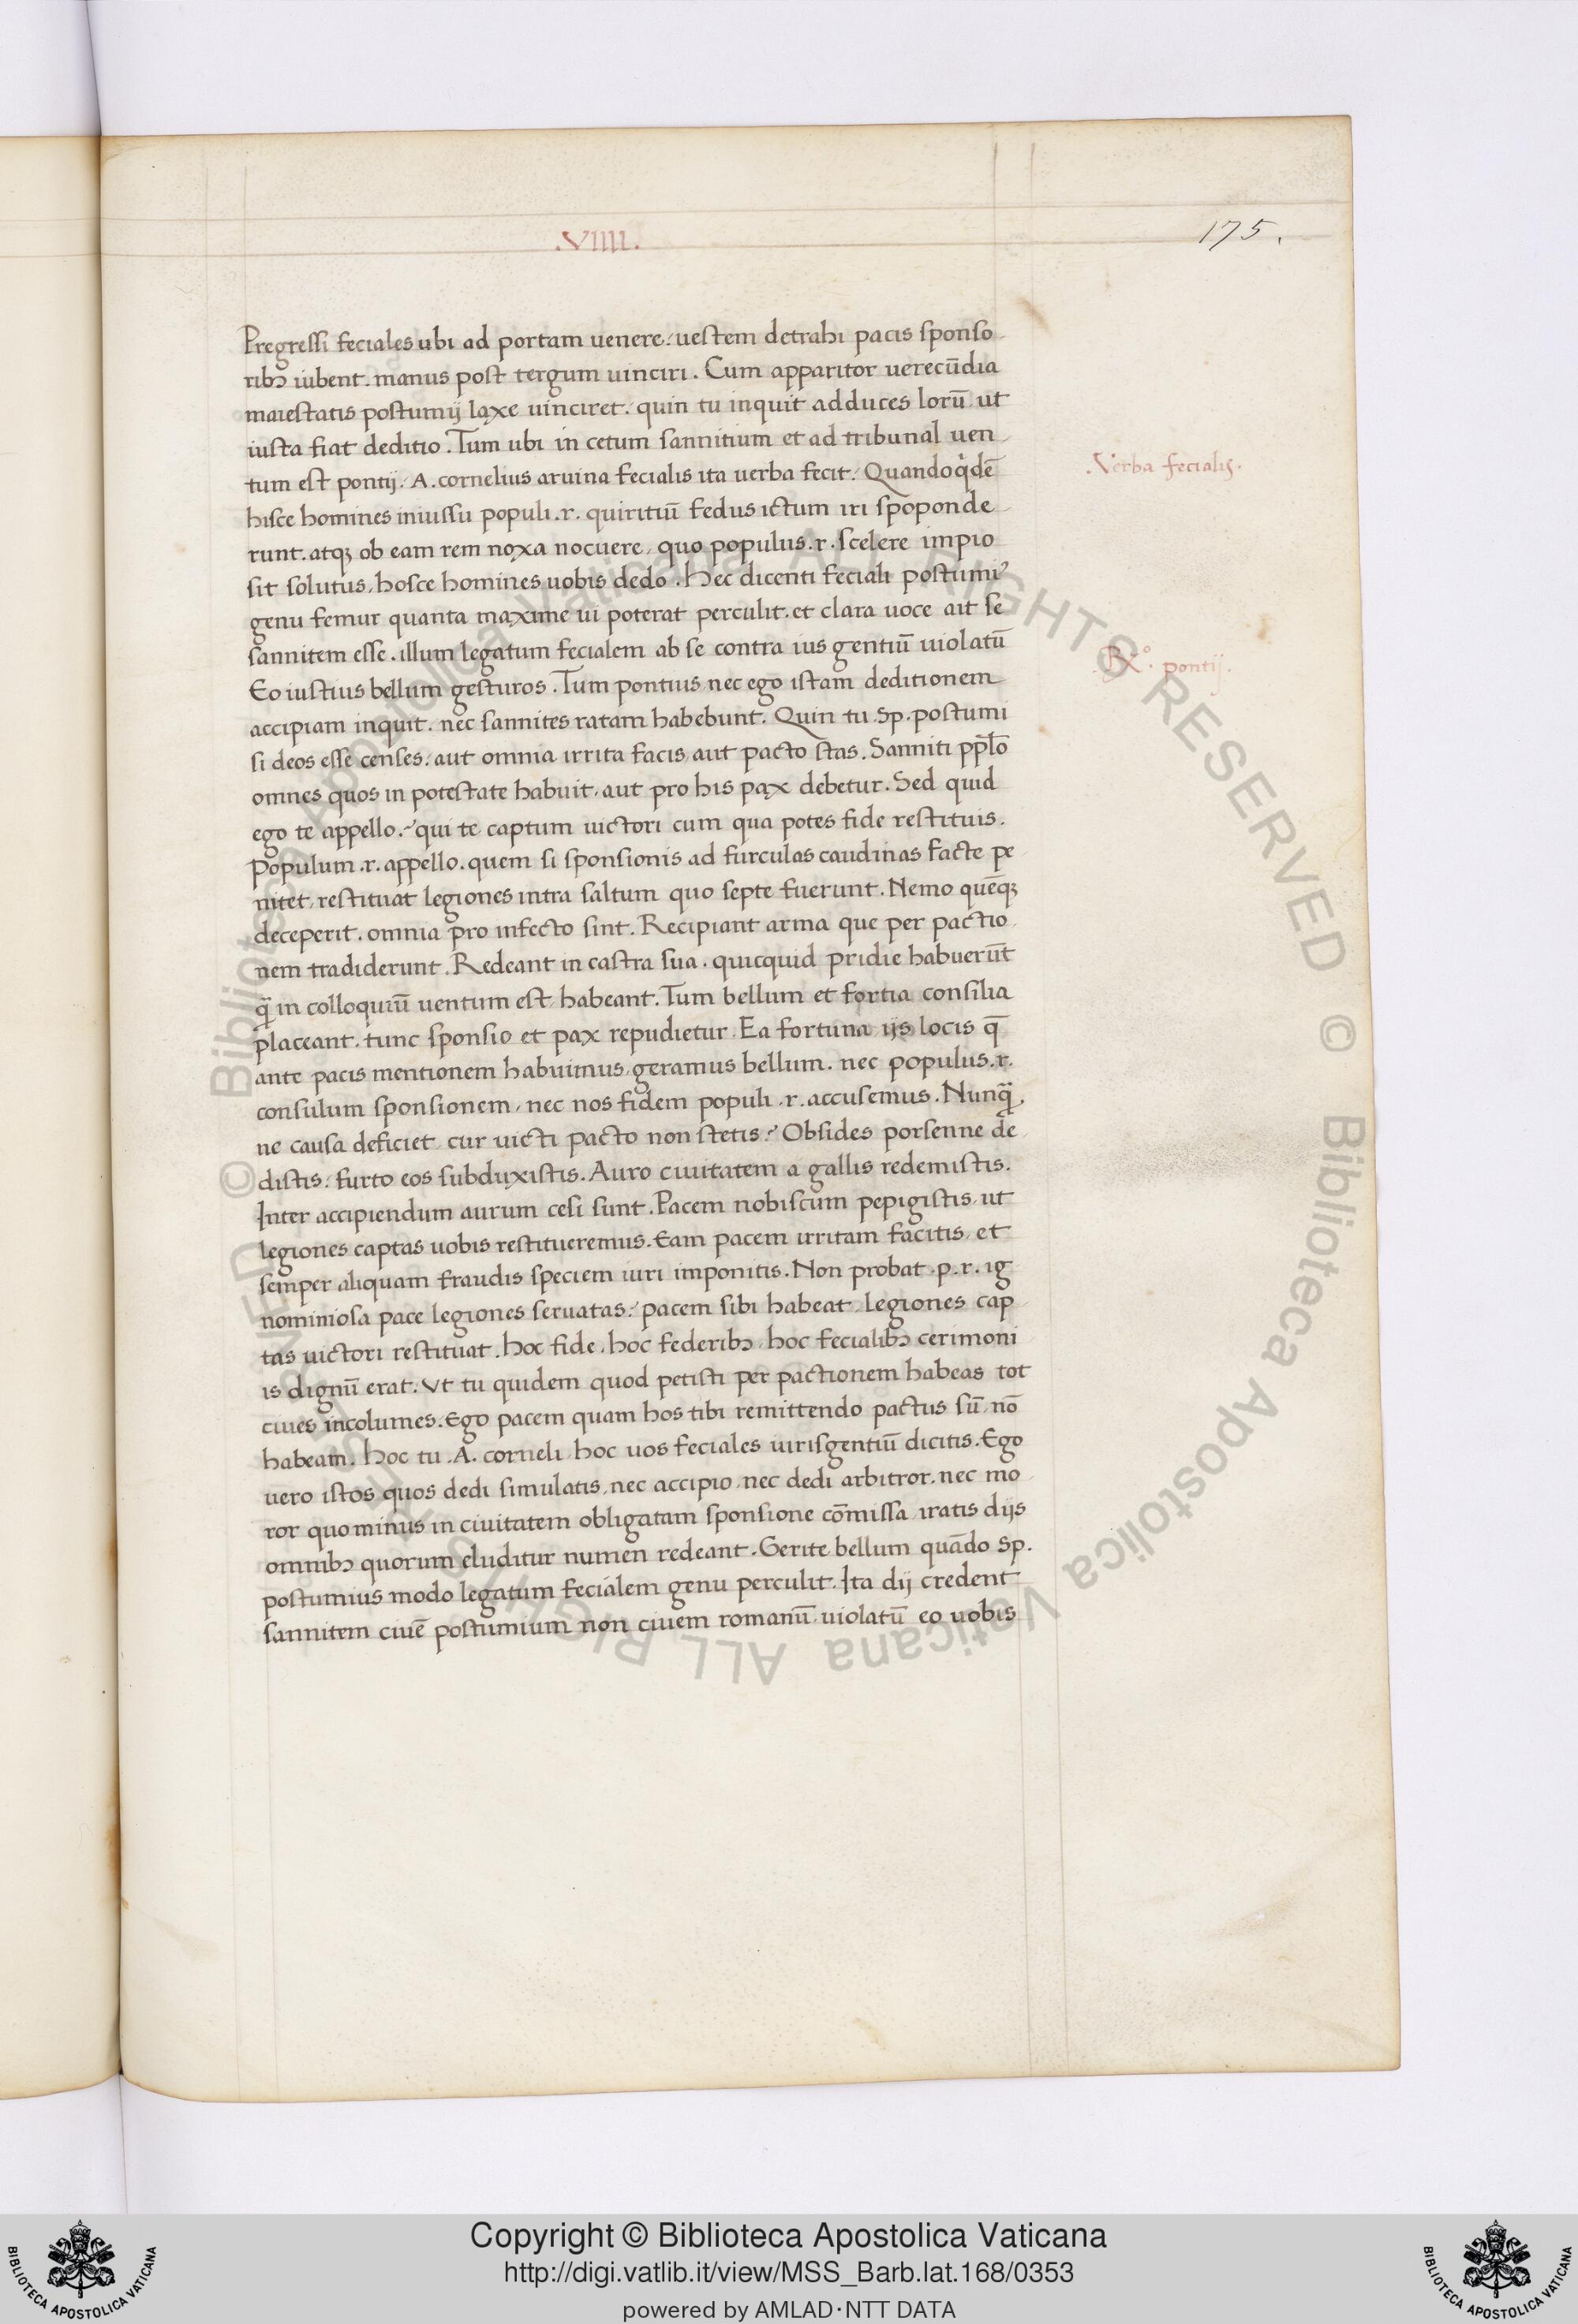 .VIIII.
175.
Pregressi feciales ubi ad portam uenere: uestem detrahi pacis sponso
ribꝫ iubent. manus post tergum uinciri. Cum apparitor uerecūdia
maiestatis postumij laxe uinciret. quin tu inquit adduces lorū ut
iusta fiat deditio. Tum ubi in cetum sannitium et ad tribunal uen
tum est pontij. A. cornelius aruina fecialis ita uerba fecit. Quandoqͥdē
Verba fecialis.
hisce homines iniussu populi .r. quiritiū fedus ictum iri spoponde
runt. atqꝫ ob eam rem noxa nocuere, quo populus .r. scelere impio
sit solutus, hosce homines uobis dedo. Hec dicenti feciali postumiꝰ
genu femur quanta maxime ui poterat perculit. et clara uoce ait se
sannitem esse. illum legatum fecialem ab se contra ius gentiū uiolatū
Eo iustius bellum gesturos. Tum pontius nec ego istam deditionem
Rº. pontij.
accipiam inquit. nec sannites ratam habebunt. Quin tu Sp. postumi
si deos esse censes. aut omnia irrita facis, aut pacto stas. Sanniti pp̄lo
omnes quos in potestate habuit, aut pro his pax debetur. Sed quid
ego te appello? qui te captum uictori cum qua potes fide restituis.
Populum .r. appello. quem si sponsionis ad furculas caudinas facte pe
nitet, restituat legiones intra saltum quo septe fuerunt. Nemo quēqꝫ
deceperit. omnia pro infecto sint. Recipiant arma que per pactio
nem tradiderunt. Redeant in castra sua. quicquid pridie habuerūt
q̄ in colloquiū uentum est, habeant. Tum bellum et fortia consilia
placeant. tunc sponsio et pax repudietur. Ea fortuna ijs locis q̄
ante pacis mentionem habuimus, geramus bellum. nec populus .r.
consulum sponsionem, nec nos fidem populi .r. accusemus. Nunq̄
ne causa deficiet cur uicti pacto non stetis? Obsides porsenne de
distis. furto eos subduxistis. Auro ciuitatem a gallis redemistis.
Inter accipiendum aurum cesi sunt. Pacem nobiscum pepigistis, ut
legiones captas uobis restitueremus. Eam pacem irritam facitis, et
semper aliquam fraudis speciem iuri imponitis. Non probat .p. r. ig
nominiosa pace legiones seruatas? pacem sibi habeat, legiones cap
tas uictori restituat. hoc fide, hoc federibꝫ, hoc fecialibꝫ cerimoni
is dignū erat. Vt tu quidem quod petisti per pactionem habeas tot
ciues incolumes. Ego pacem quam hos tibi remittendo pactus sū, nō
habeam. Hoc tu .A. corneli, hoc uos feciales iurisgentiū dicitis. Ego
uero istos quos dedi simulatis, nec accipio, nec dedi arbitror. nec mo
ror quominus in ciuitatem obligatam sponsione cōmissa, iratis dijs
omnibꝫ quorum eluditur numen redeant. Gerite bellum quādo Sp.
postumius modo legatum fecialem genu perculit. Ita dij credent
sannitem ciuē postumium non ciuem romanū, uiolatū eo uobis
© Biblioteca Apostolica Vaticana ALL RIGHTS RESERVED © Biblioteca Apostolica Vaticana ALL RIGHTS RESERVED
BIBLIOTECA APOSTOLICA VATICANA
Copyright © Biblioteca Apostolica Vaticana
http://digi.vatlib.it/view/MSS_Barb.lat.168/0353
powered by AMLAD·NTT DATA
BIBLIOTECA APOSTOLICA VATICANA